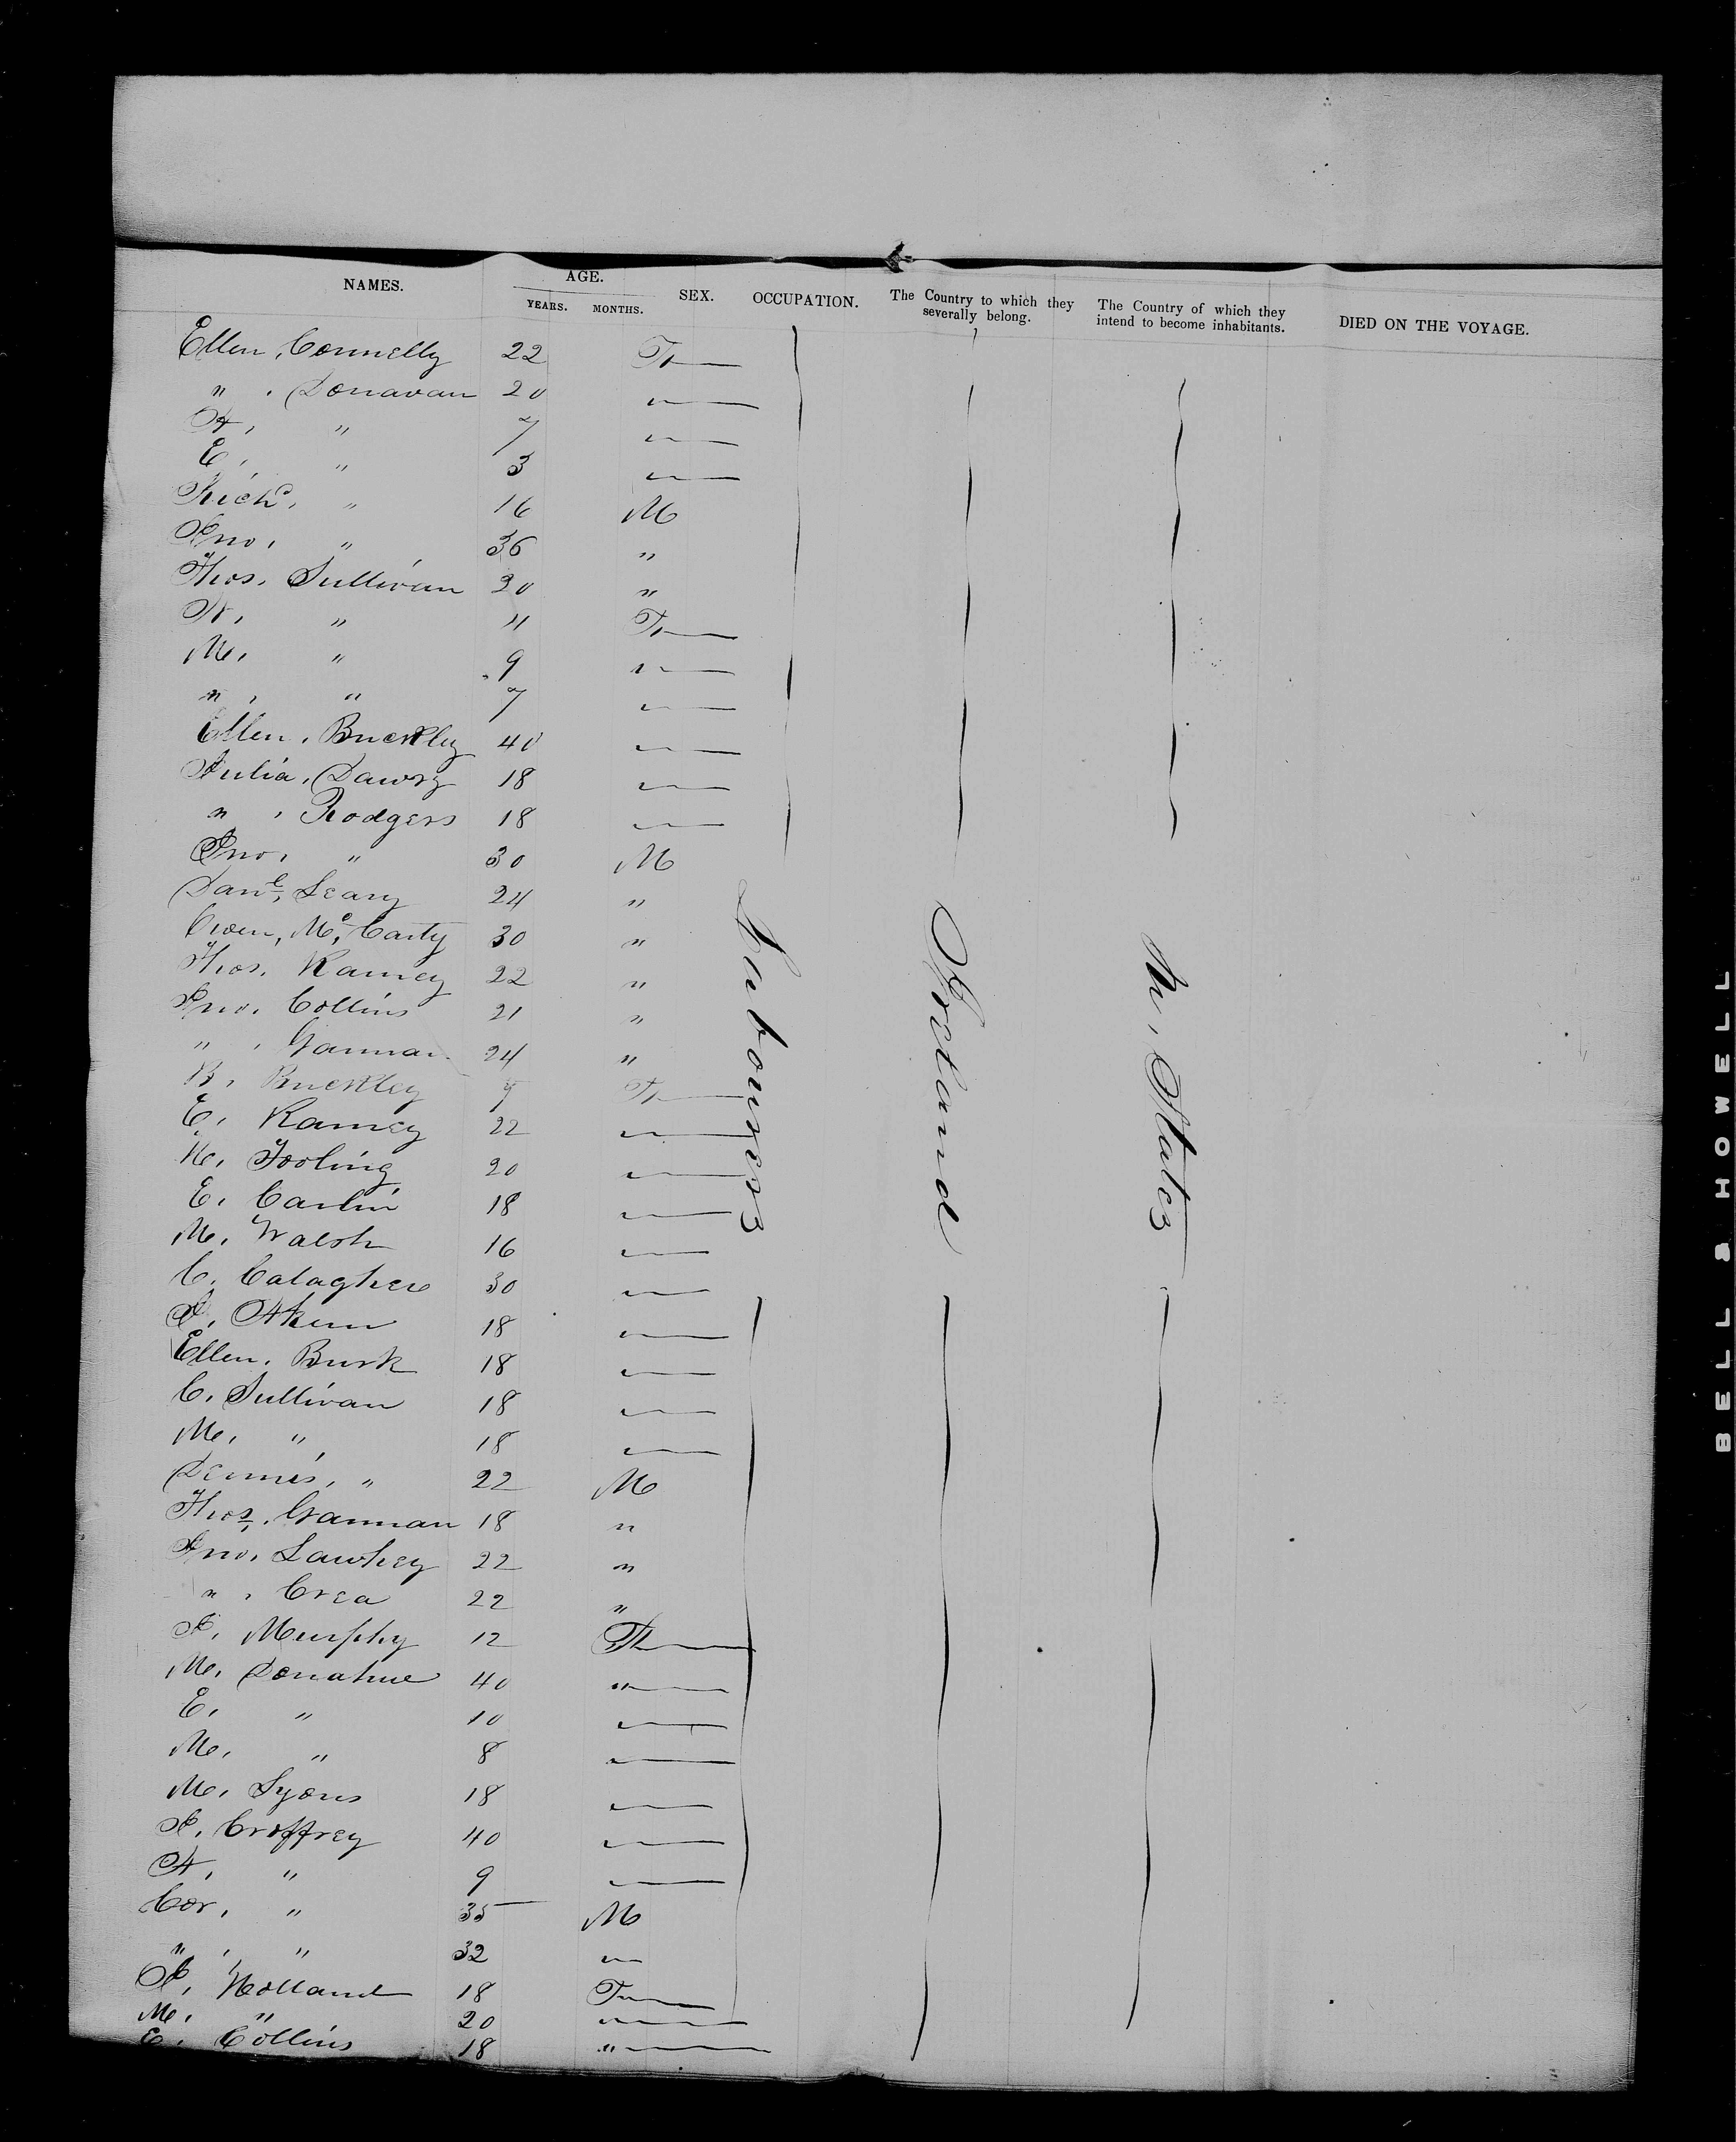 NAMES. AGE. YEARS. MONTHS. SEX. OCCUPATION. The Country to which they severally belong. The Country of which they intend to become inhabitants. DIED ON THE VOYAGE.
Ellen, Connelly 22 F
" , Donavan 20 "
A, " 7 "
E, " 3 "
Richd, " 16 M
Jno, " 36 "
Thos, Sullivan 30 "
A, " 11 F
M, " 9 "
" , " 7 "
Ellen, Buckley 40 "
Julia, Dawsy 18 "
" , Rodgers 18 "
Jno, " 30 M
Danl, Leary 24 "
Owen, Mc,Carty 30 "
Thos, Ramey 22 "
Jno, Collins 21 "
" , Gannan 24 "
B, Buckley 7 F
E, Ramey 22 "
K, Tooling 20 "
E, Carlin 18 "
M, Walsh 16 "
C, Calaghere 30 "
J, Ahern 18 "
Ellen, Burk 18 "
C, Sullivan 18 "
M, " 18 "
Dennis, " 22 M
Thos, Gannan 18 "
Jno, Lawhey 22 "
" , Crea 22 "
J, Murphy 12 F
M, Donahue 40 "
E, " 10 "
M, " 8 "
M, Lyons 18 "
J, Croffrey 40 "
A, " 9 "
Cor, " 35 M
" , " 32 "
J, Holland 18 F
M, " 20 "
E, Collins 18 "
Labourers
Ireland
Un, States
BELL & HOWELL